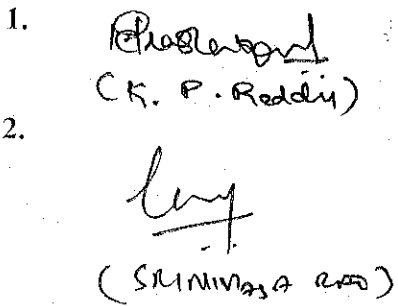 1.
(K. P. Reddy)
2.
(SRINIVASA RAO)